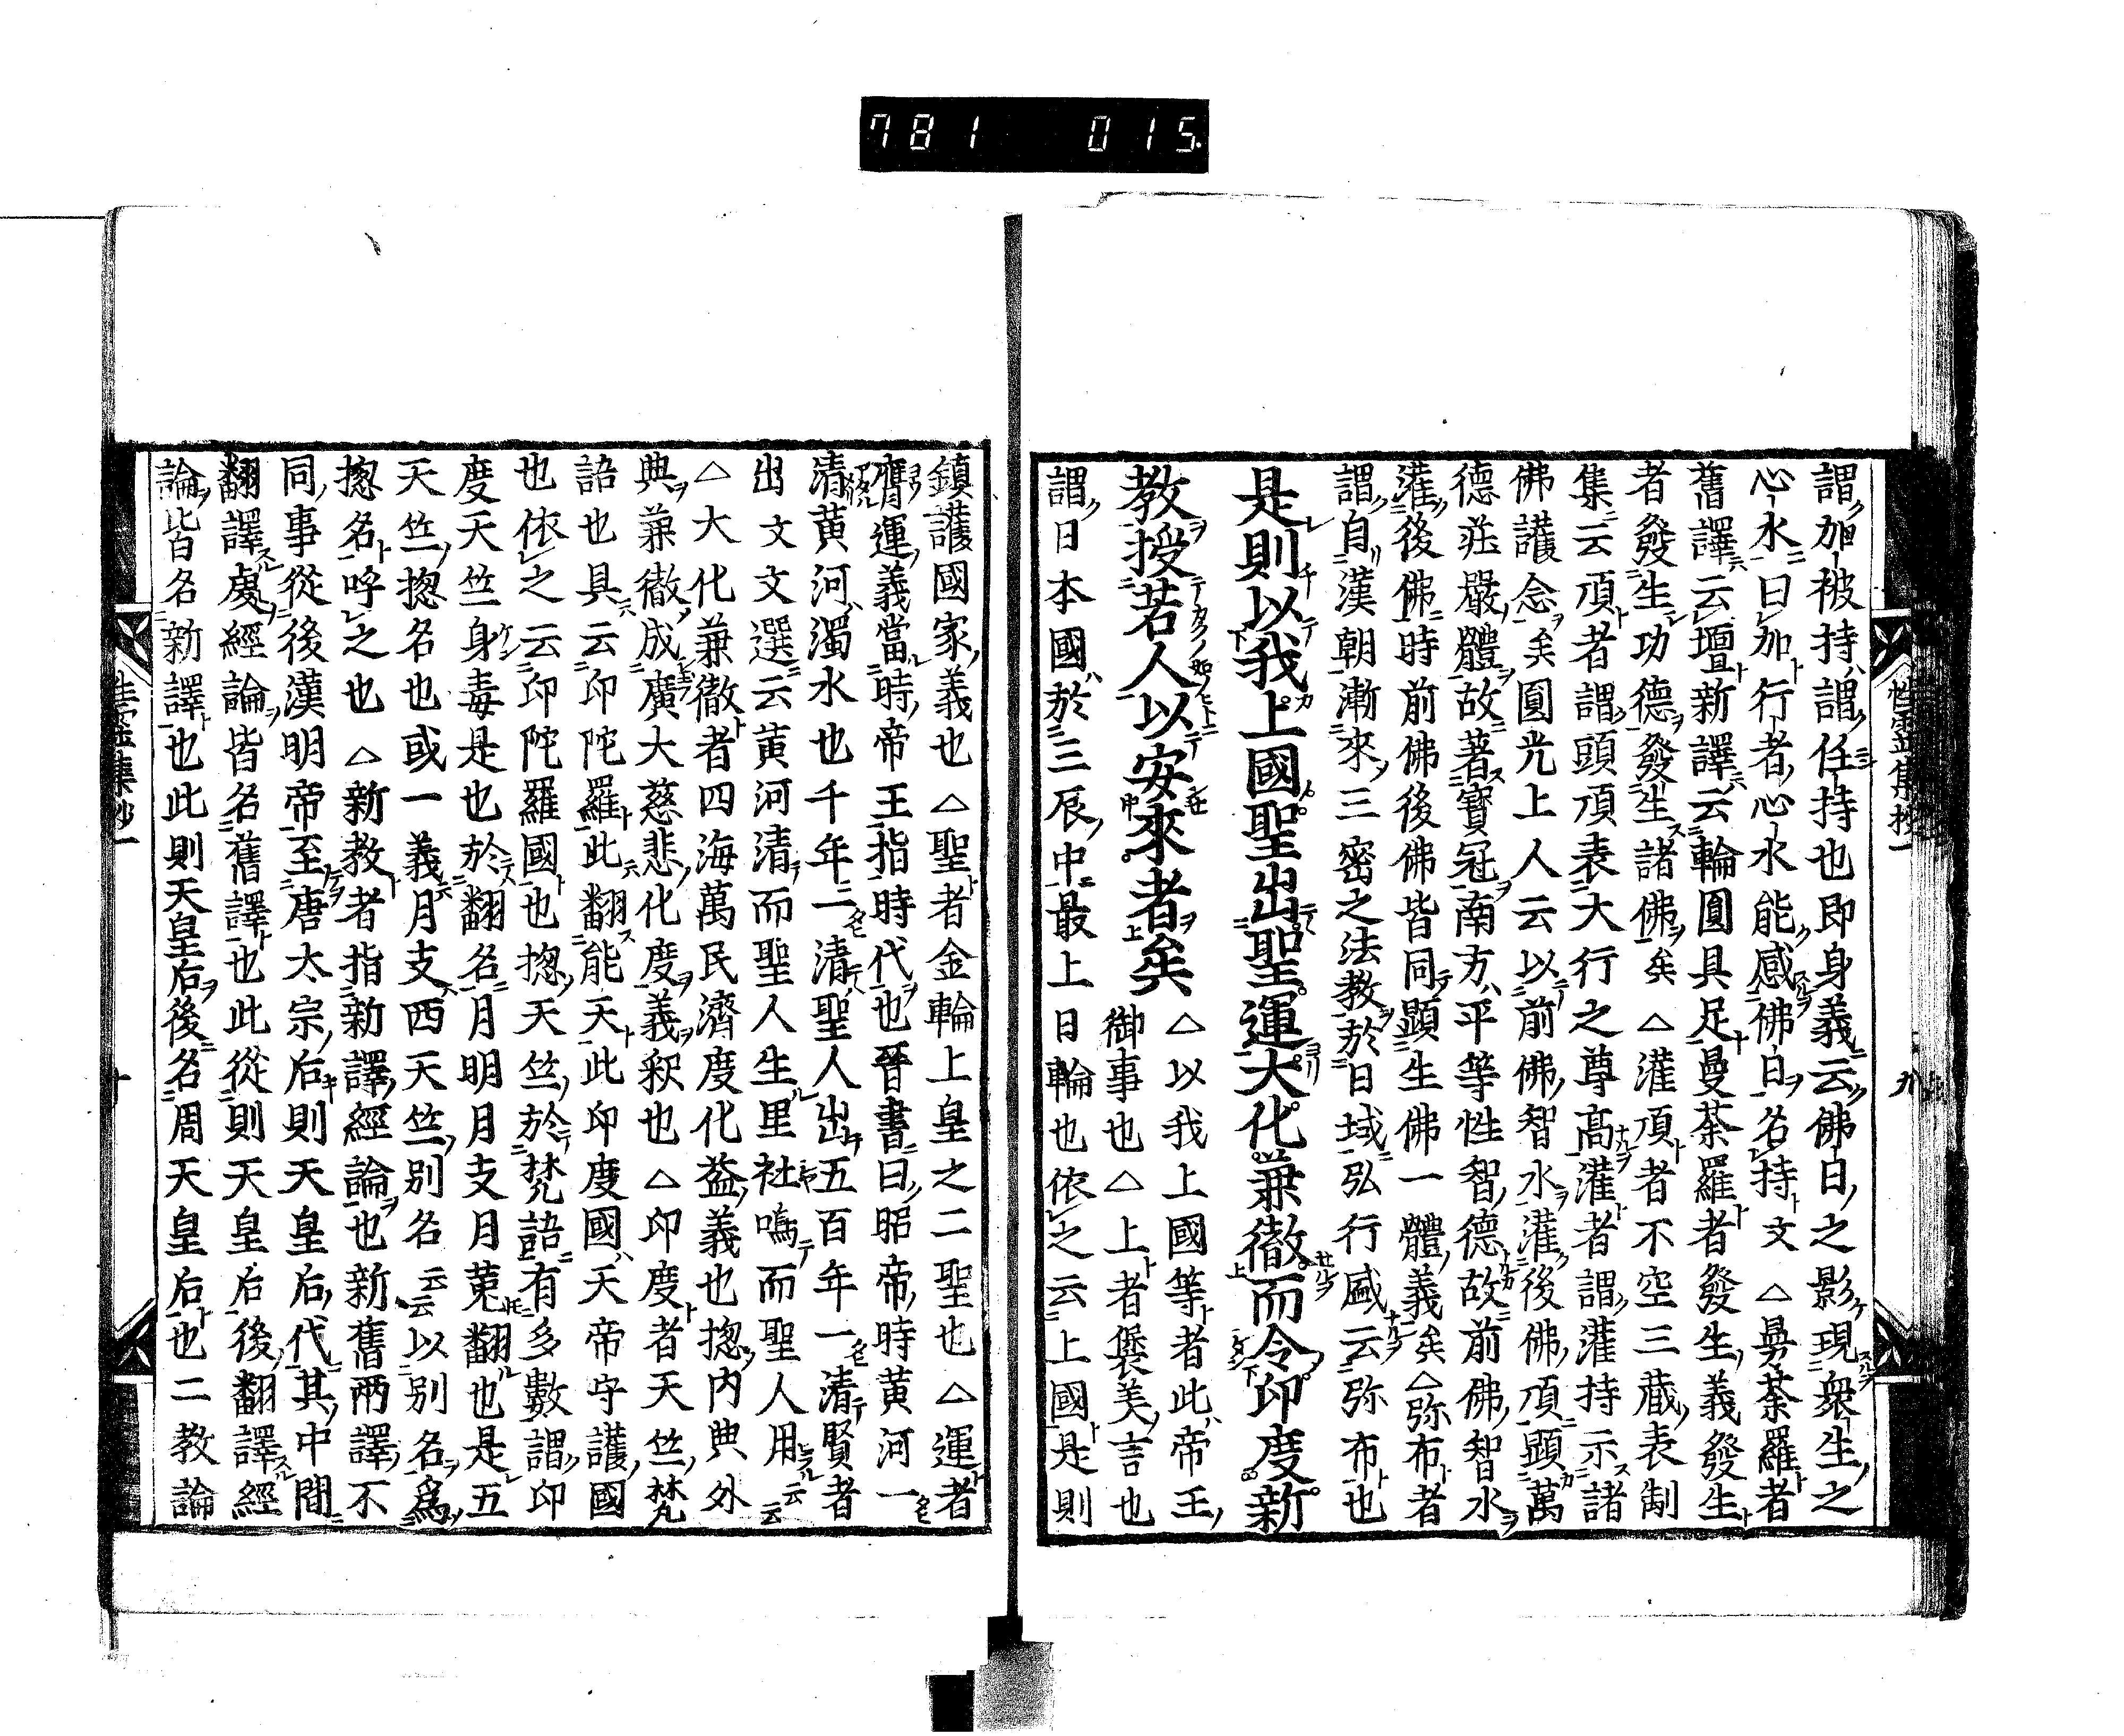 781 015
性靈集抄一 九
謂加被持謂任持也即身義云佛日之影現衆生之
心水曰加行者心水能感佛日名持文△曼荼羅者
舊譯云壇新譯云輪圓具足曼荼羅者發生義發生
者發生功德發生諸佛矣△灌頂者不空三藏表制
集云頂者謂頭頂表大行之尊高灌者謂灌持示諸
佛護念矣圓光上人云以前佛智水灌後佛頂顕萬
德莊嚴體故著寳冠南方平等性智德故前佛智水
灌後佛時前佛後佛皆同顕生佛一體義矣△弥布者
謂自漢朝漸來三密之法教於日域弘行盛云弥布也
是則以我上國聖出聖運大化兼徹而令印度新
教授若人以安來者矣 △以我上國等者此帝王
御事也△上者襃美言也
謂日本國於三辰中最上日輪也依之云上國是則
鎮護國家義也△聖者金輪上皇之二聖也△運者
膺運義當時帝王指時代也晉書曰昭帝時黄河一
清黄河濁水也千年二清聖人出五百年一清賢者
出文文選云黄河清而聖人生里社鳴而聖人用云云
△大化兼徹者四海萬民濟度化益義也揔内典外
典兼徹成廣大慈悲化度義釈也△印度者天竺梵
語也具云印陀羅此翻能天此印度國天帝守護國
也依之云印陀羅國也揔天竺於梵語有多數謂印
度天竺身毒是也於翻名月明月支月菟翻也是五
天竺揔名也或一義月支西天竺別名云云以別名爲
揔名呼之也△新教者指新譯經論也新舊兩譯不
同事從後漢明帝至唐太宗后則天皇后代其中間
翻譯處經論皆名舊譯也此從則天皇后後翻譯經
論皆名新譯也此則天皇后後名周天皇后也二教論
性靈集抄一 十